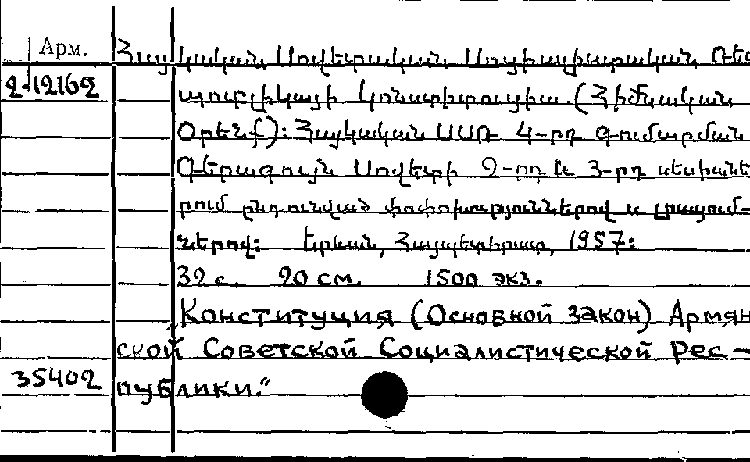 Арм. Հայկական Սովետական Սոցիալիստական Ռես
2-12162 պուբլիկայի կոնստիտուցիա (Հիմնական
Օրենք): Հայկական ՍՍՌ 4-րդ գումարման
Գերագույն Սովետի 2-րդ և 3-րդ սեսիանե
րում ընդունված փոփոխություններով և լրացում-
ներով: Երևան, Հայպետհրատ, 1957:
32 с. 20 см. 1500 экз.
„Конституция (Основной закон) Армян
ской Советской Социалистической Рес-
35402 публики.“